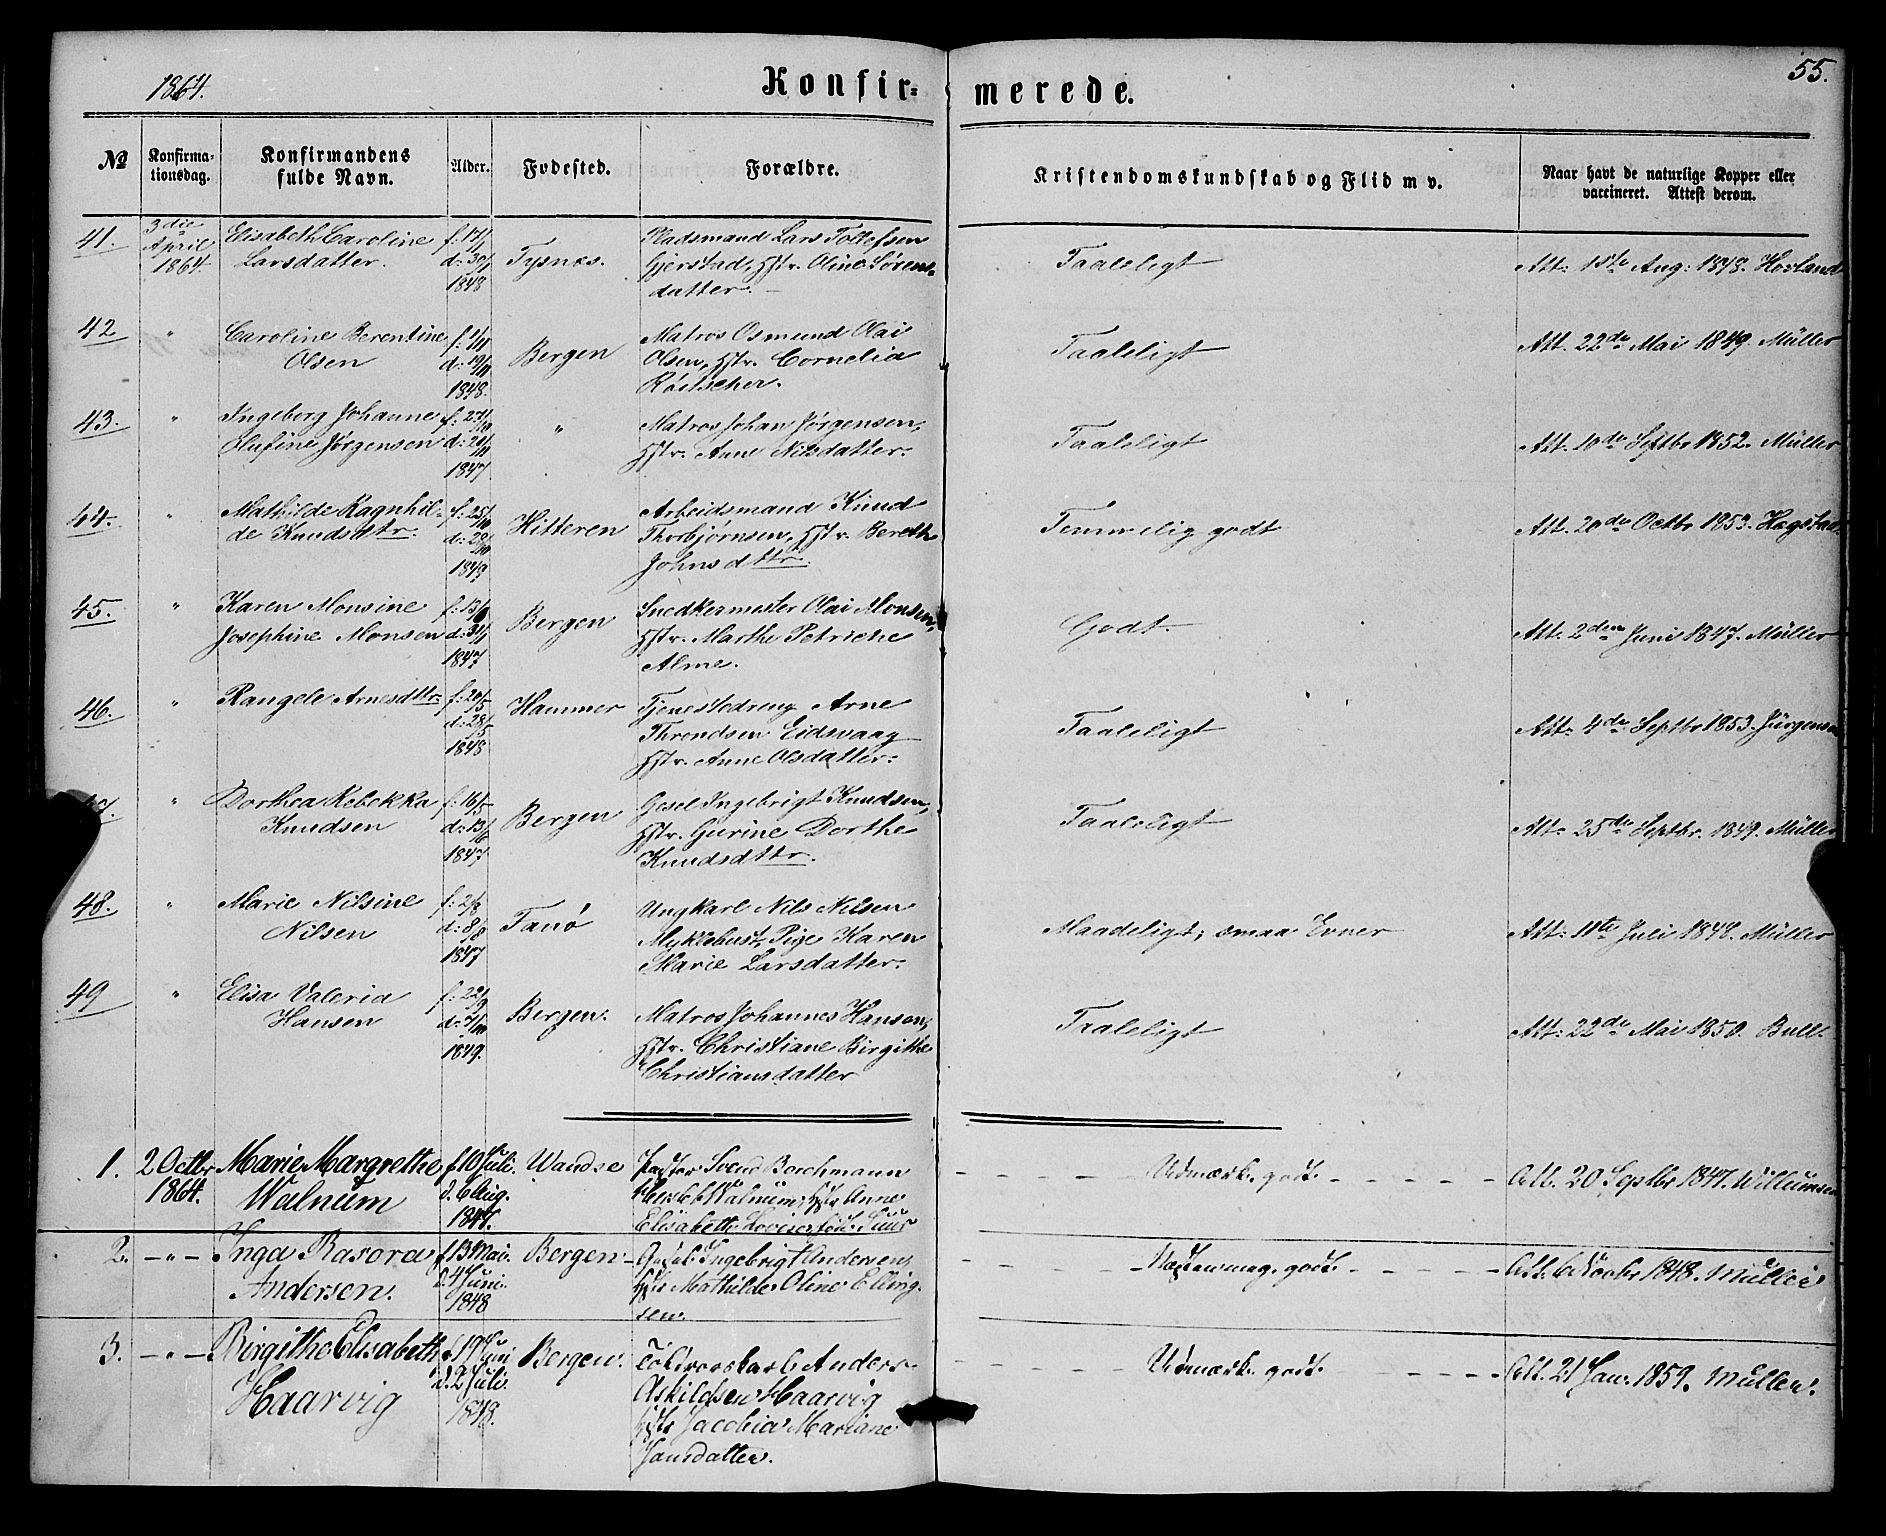 1864.
Konfir-
merede.
55.
№
Konfirma-
tionsdag.
Konfirmandens
fulde Navn.
Alder.
Fødested.
Forældre.
Kristendomskundskab og Flid m v.
Naar havt de naturlige Kopper eller
vaccineret. Attest derom.
41.
3die
April
1864.
Elisabeth Caroline
Larsdatter.
1848
Tysnes.
Pladsmand Lars Tollefsen
Gjerstad, Hstr. Oline Sørens-
datter.
Taaleligt
Att: Aug: 1848. Hovland
42
"
Caroline Berentine
Olsen
f. 1/11
d. 19/11
1848.
Bergen
Matros Osmund Olai
Olsen, Hstr. Cornelia
Taaleligt
Att. 22de Mai 1849. Müller
43.
"
Ingeborg Johanne
Olufine Jørgensen
1847
"
Matros Johan Jørgensen,
Hstr. Anne Nilsdatter.
Taaleligt
Att. 10de Septbr 1852. Müller
44.
"
Mathilde Ragnhil-
de Knudsdttr.
f: 25/10
1849
Hitteren
Arbeidsmand Knud
Thorbjørnsen, Hstr. Bereth
Johnsdttr.
Temmelig godt
Att. 20de Octbr 1853. Hagstad
45.
"
Karen Monsine
Josephine Monsen
1847
Bergen
Snedkermester Olai Monsen,
Hstr. Marthe Petriche
Alme.
Godt.
Att. 2den Juni 1847. Müller
46.
"
Rangele Arnesdttr.
f: 20/5
d: 28/5
1848
Hammer
Tjenestedreng Arne
Throndsen Eidsvaag
Hstr. Anne Olsdatter.
Taaleligt
Att: 4de Septbr 1853. Jürgensen
"
Dorthea Rebekka
Knudsen
f: 16/5
d: 13/6
1847
Bergen
Gesel Ingebrigt Knudsen,
Hstr. Gurine Dorthe
Knudsdttr.
Taaleligt
Att: 25de Septbr. 1849. Müller
48.
"
Marie Nilsine
Nilsen
f: 2/8
d: 8/8
1847
Fanø
Ungkarl Nils Nilsen
Myklebust, Pige Karen
Marie Larsdatter.
Maadeligt; smaa Evner
Att: 11te Juli 1848. Müller
49
"
Elisa Valeria
Hansen
f: 22/9
1849.
Bergen.
Matros Johannes Hansen,
Hstr. Christiane Birgithe
Christiansdatter
Taaleligt
Att: 22de Mai 1850. Bull.
1.
2 Octbr
1864.
Marie Margrethe
Walnum
f. 10 Juli.
d. 6 Aug.
1847.
Wandsø
Pastor Svend Borchmann
Walnum, Hstr Anne
Elisabeth Lovise, født
Udmærk. godt.
Att. 20 Septbr 1847. Willumsen
2.
-"-
Inga Rasora
Andersen.
f. 13 Mai.
d. 4 Juni.
1848
Bergen
Ingebrigt Andersen,
Hstr Mathilde Oline Elling-
sen.
Næsten meg. godt.
Att. 6 Novbr 1848. Müller
3.
-"-
Birgithe Elisabeth
Haarvig
f. 19 Juni
d. 2 Juli.
1848.
Bergen.
Anders
Askildsen Haarvig
Hstr Jacobia Mariane
Jansdatter.
Udmærk. godt.
Att. 21 Jan. 1859. Müller.